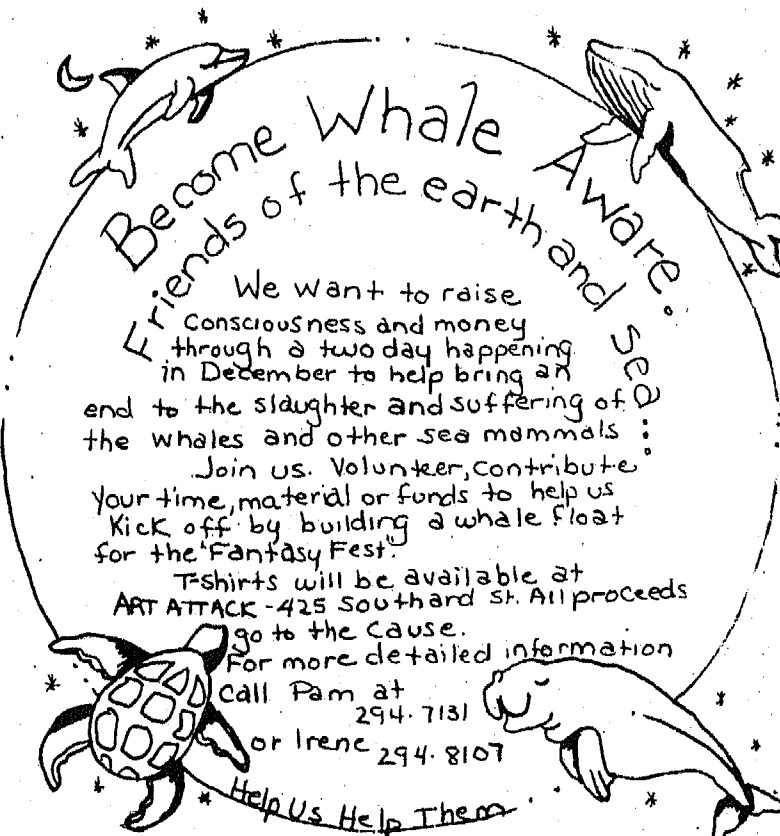 Become Whale Aware.
Friends of the earth and sea...
We want to raise
consciousness and money
through a two day happening
in December to help bring an
end to the slaughter and suffering of
the whales and other sea mammals
Join us. Volunteer, contribute
your time, material or funds to help us
Kick off by building a whale float
for the "Fantasy Fest".
T-shirts will be available at
ART ATTACK - 425 Southard st. All proceeds
go to the cause.
For more detailed information
call Pam at
294-7131
or Irene 294-8107
Help Us Help Them